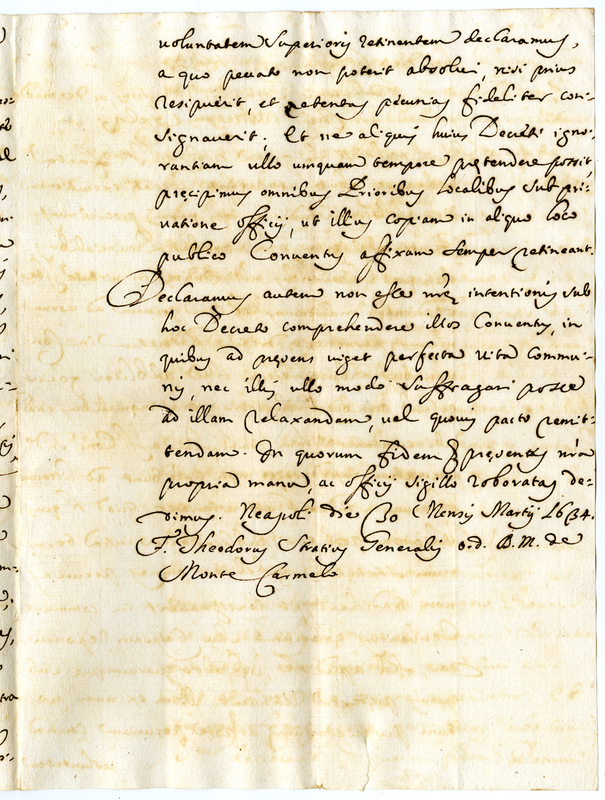 voluntatem Superioris retinentem declaramus,
a quo peccato non poterit absolui, nisi prius
resipuerit, et retentas pecunias fideliter con-
signauerit; Et ne aliquis huius Decreti igno-
rantiam ullo umquam tempore prętendere possit,
pręcipimus omnibus Prioribus localibus sub pri-
uatione officij, ut illius copiam in aliquo loco
publico Conventus affixam semper retineant.
Declaramus autem non esse nrę intentionis sub
hoc Decreto comprehendere illos Conventus, in
quibus ad pręsens uiget perfecta uita commu-
nis, nec illis ullo modo suffragari posse
ad illam relaxandam, uel quouis pacto remit-
tendam. In quorum fidem pręsentes nrã
propria manu, ac officij sigillo roboratas de-
dimus. Neapol. die 30 Mensis Martij 1634.
F. Theodorus Stratius Generalis o.d. B.M. de
Monte Carmelo